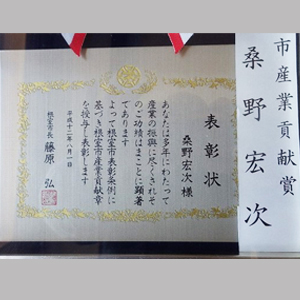 市産業貢献賞
桑野宏次
表彰状
桑野宏次 様
あなたは多年にわたって
産業の振興に尽くされそ
のご功績はまことに顕著
であります
よって根室市表彰条例に
基づき根室市産業貢献章
を授与し表彰します
平成十二年八月一日
根室市長 藤原 弘